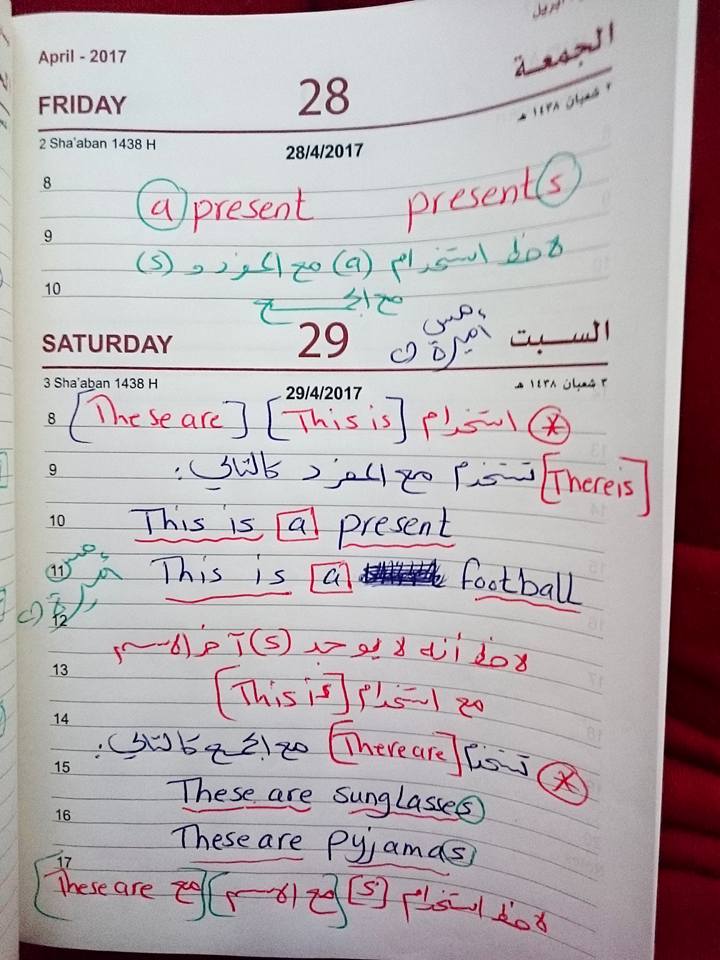 April - 2017
FRIDAY 28 الجمعة
2 Sha'aban 1438 H 28/4/2017 ٢ شعبان ١٤٣٨ هـ
8
a present presents
9
لاحظ استخدام (a) مع المفرد و (s)
10
مع الجمع
SATURDAY 29 السبت
مس أميرة
3 Sha'aban 1438 H 29/4/2017 ٣ شعبان ١٤٣٨ هـ
8
* استخدام [This is] [These are]
9
[There is] تستخدم مع المفرد كالتالي:
10
This is a present
11
This is a football
مس أميرة
12
لاحظ أنه لا يوجد (s) آخر الاسم
13
مع استخدام [This is]
14
* تستخدم [There are] مع الجمع كالتالي:
15
These are sunglasses
16
These are pyjamas
17
لاحظ استخدام [s] مع الاسم مع These are